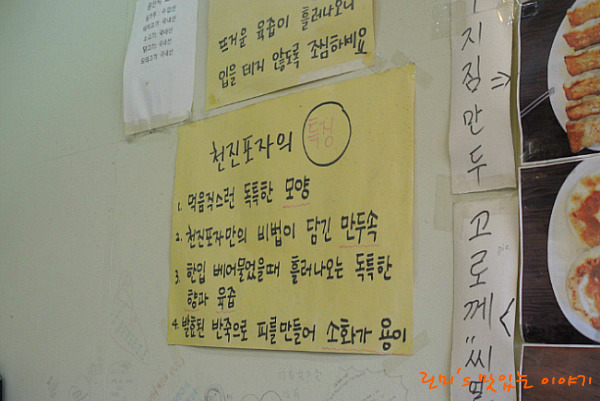 뜨거운 육즙이 흘러나오니
입을 데지 않도록 조심하세요
천진포자의 특징
1. 먹음직스런 독특한 모양
2. 천진포자만의 비법이 담긴 만두속
3. 한입 베어물었을때 흘러나오는 독특한
향과 육즙
4. 발효된 반죽으로 피를만들어 소화가 용이
지짐만두
고로께"씨엘
pic
린미's 맛있는 이야기